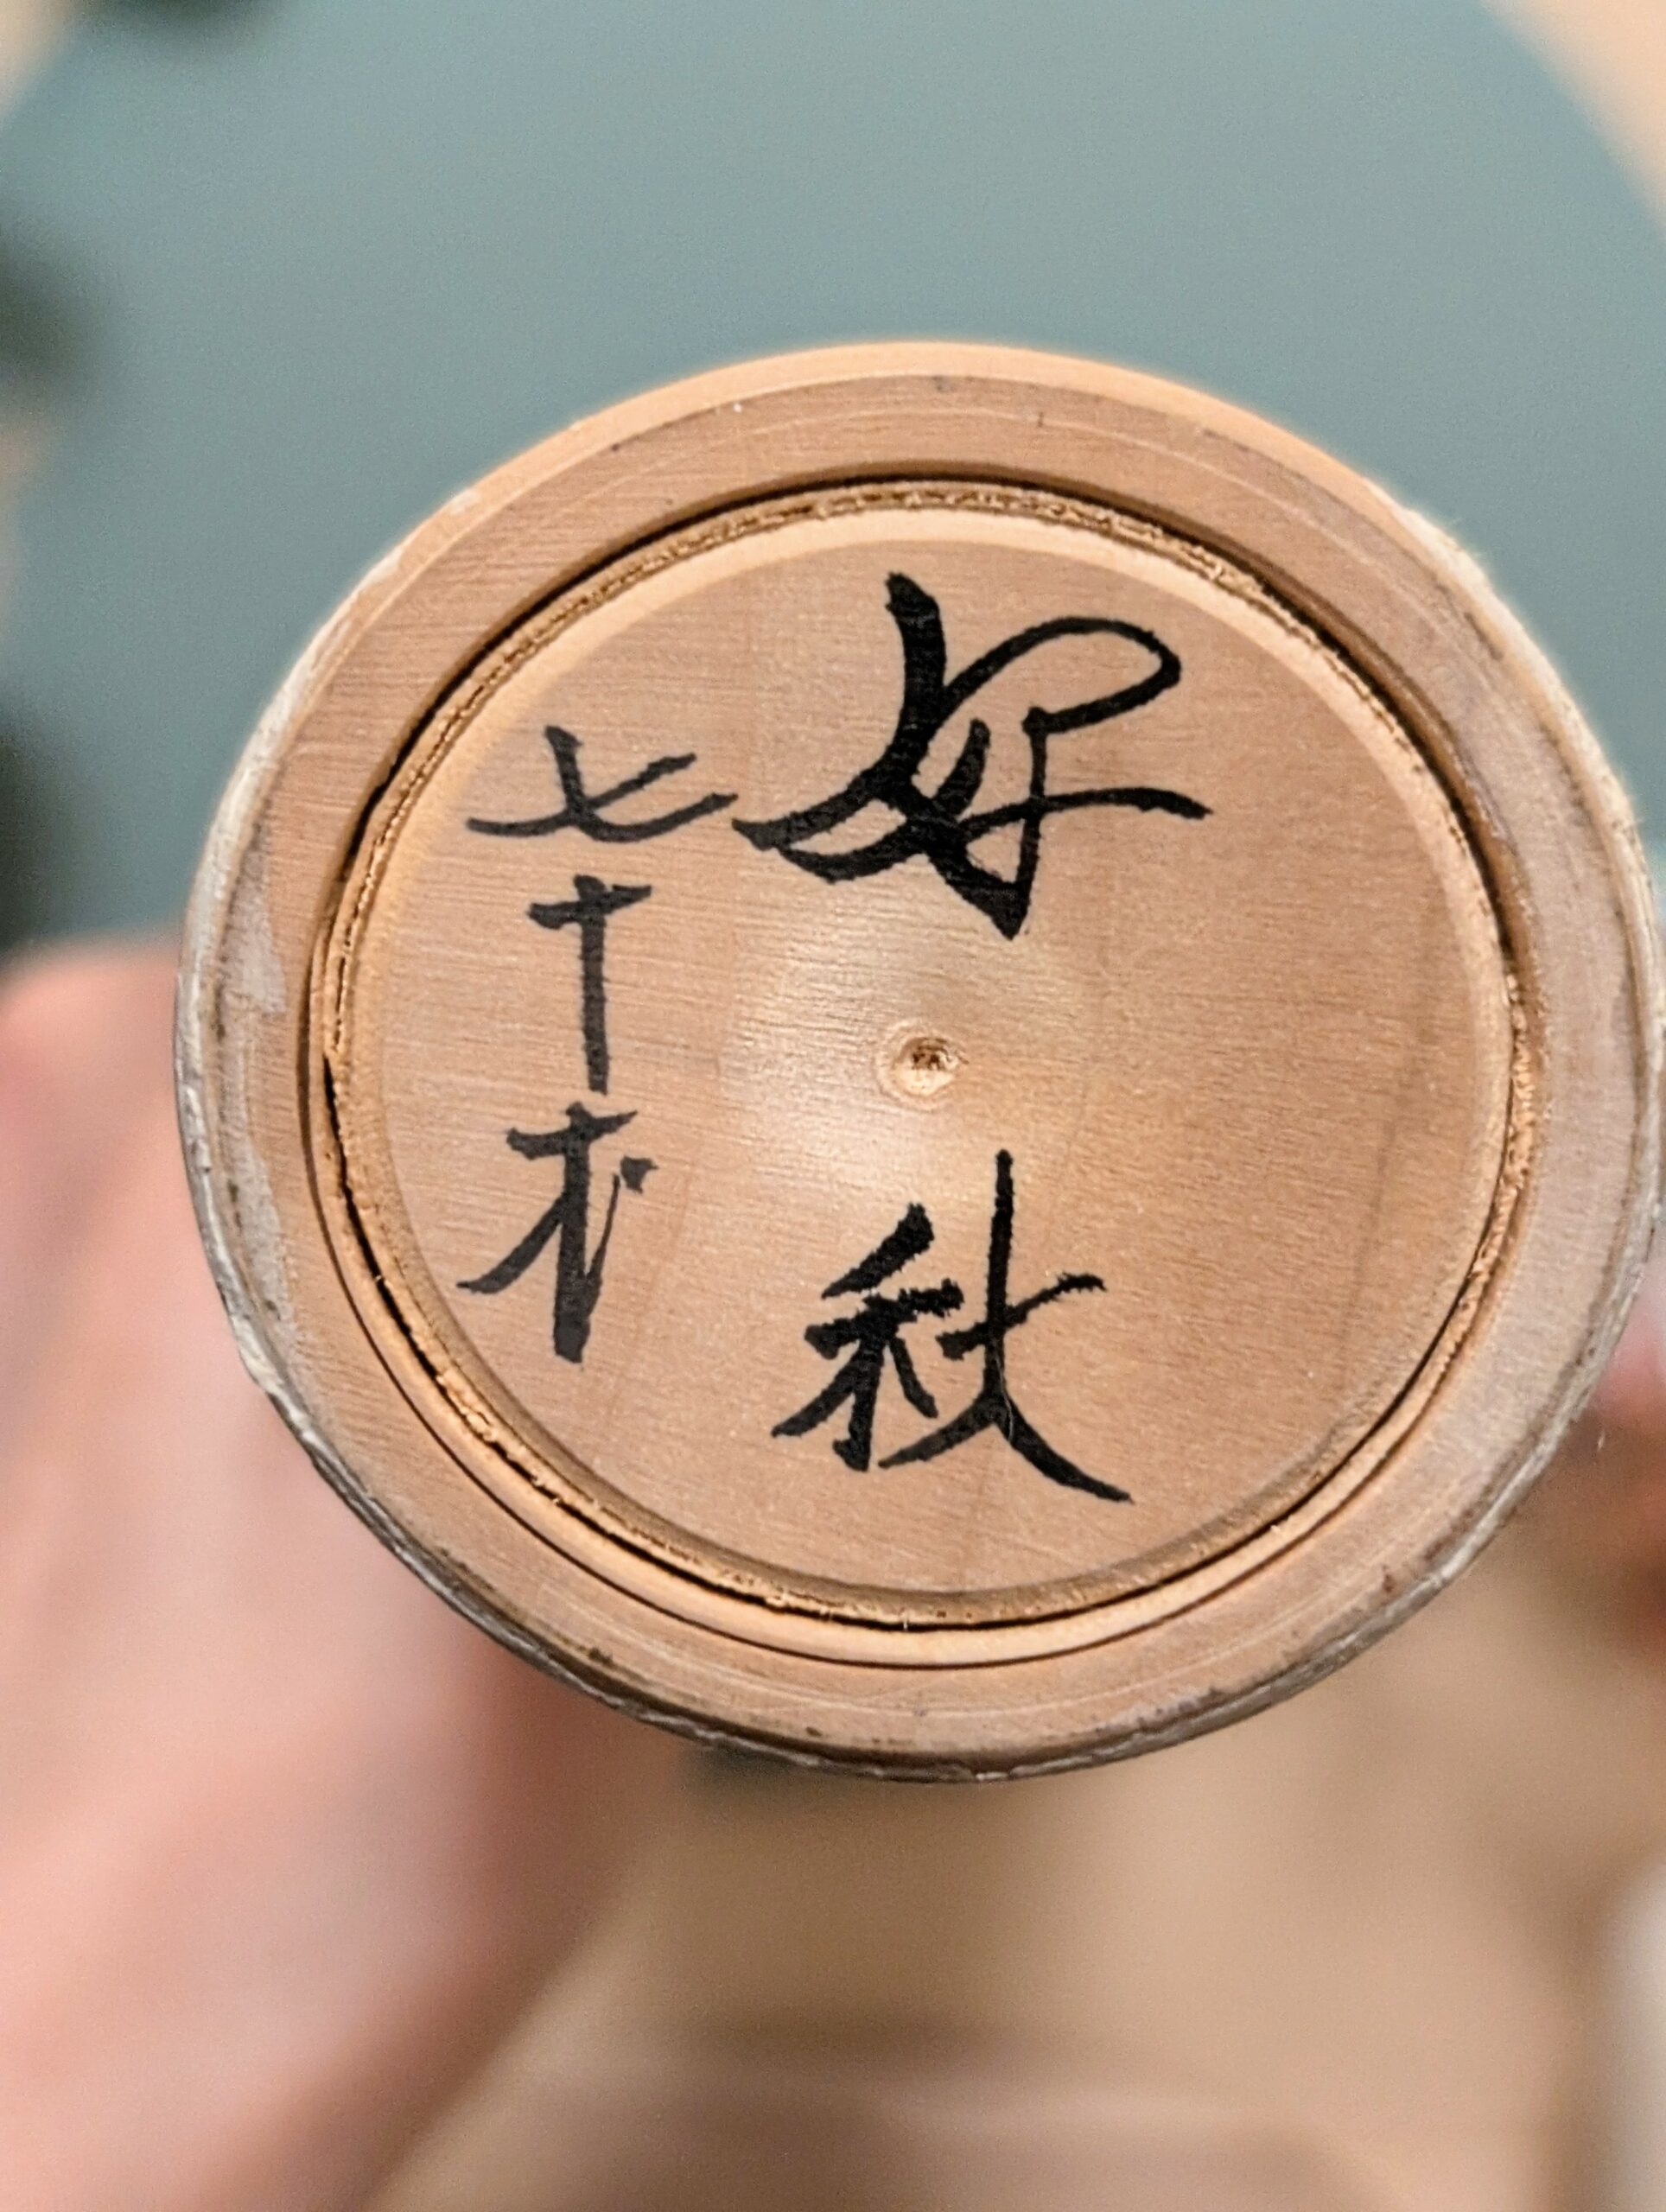 好秋
七十才